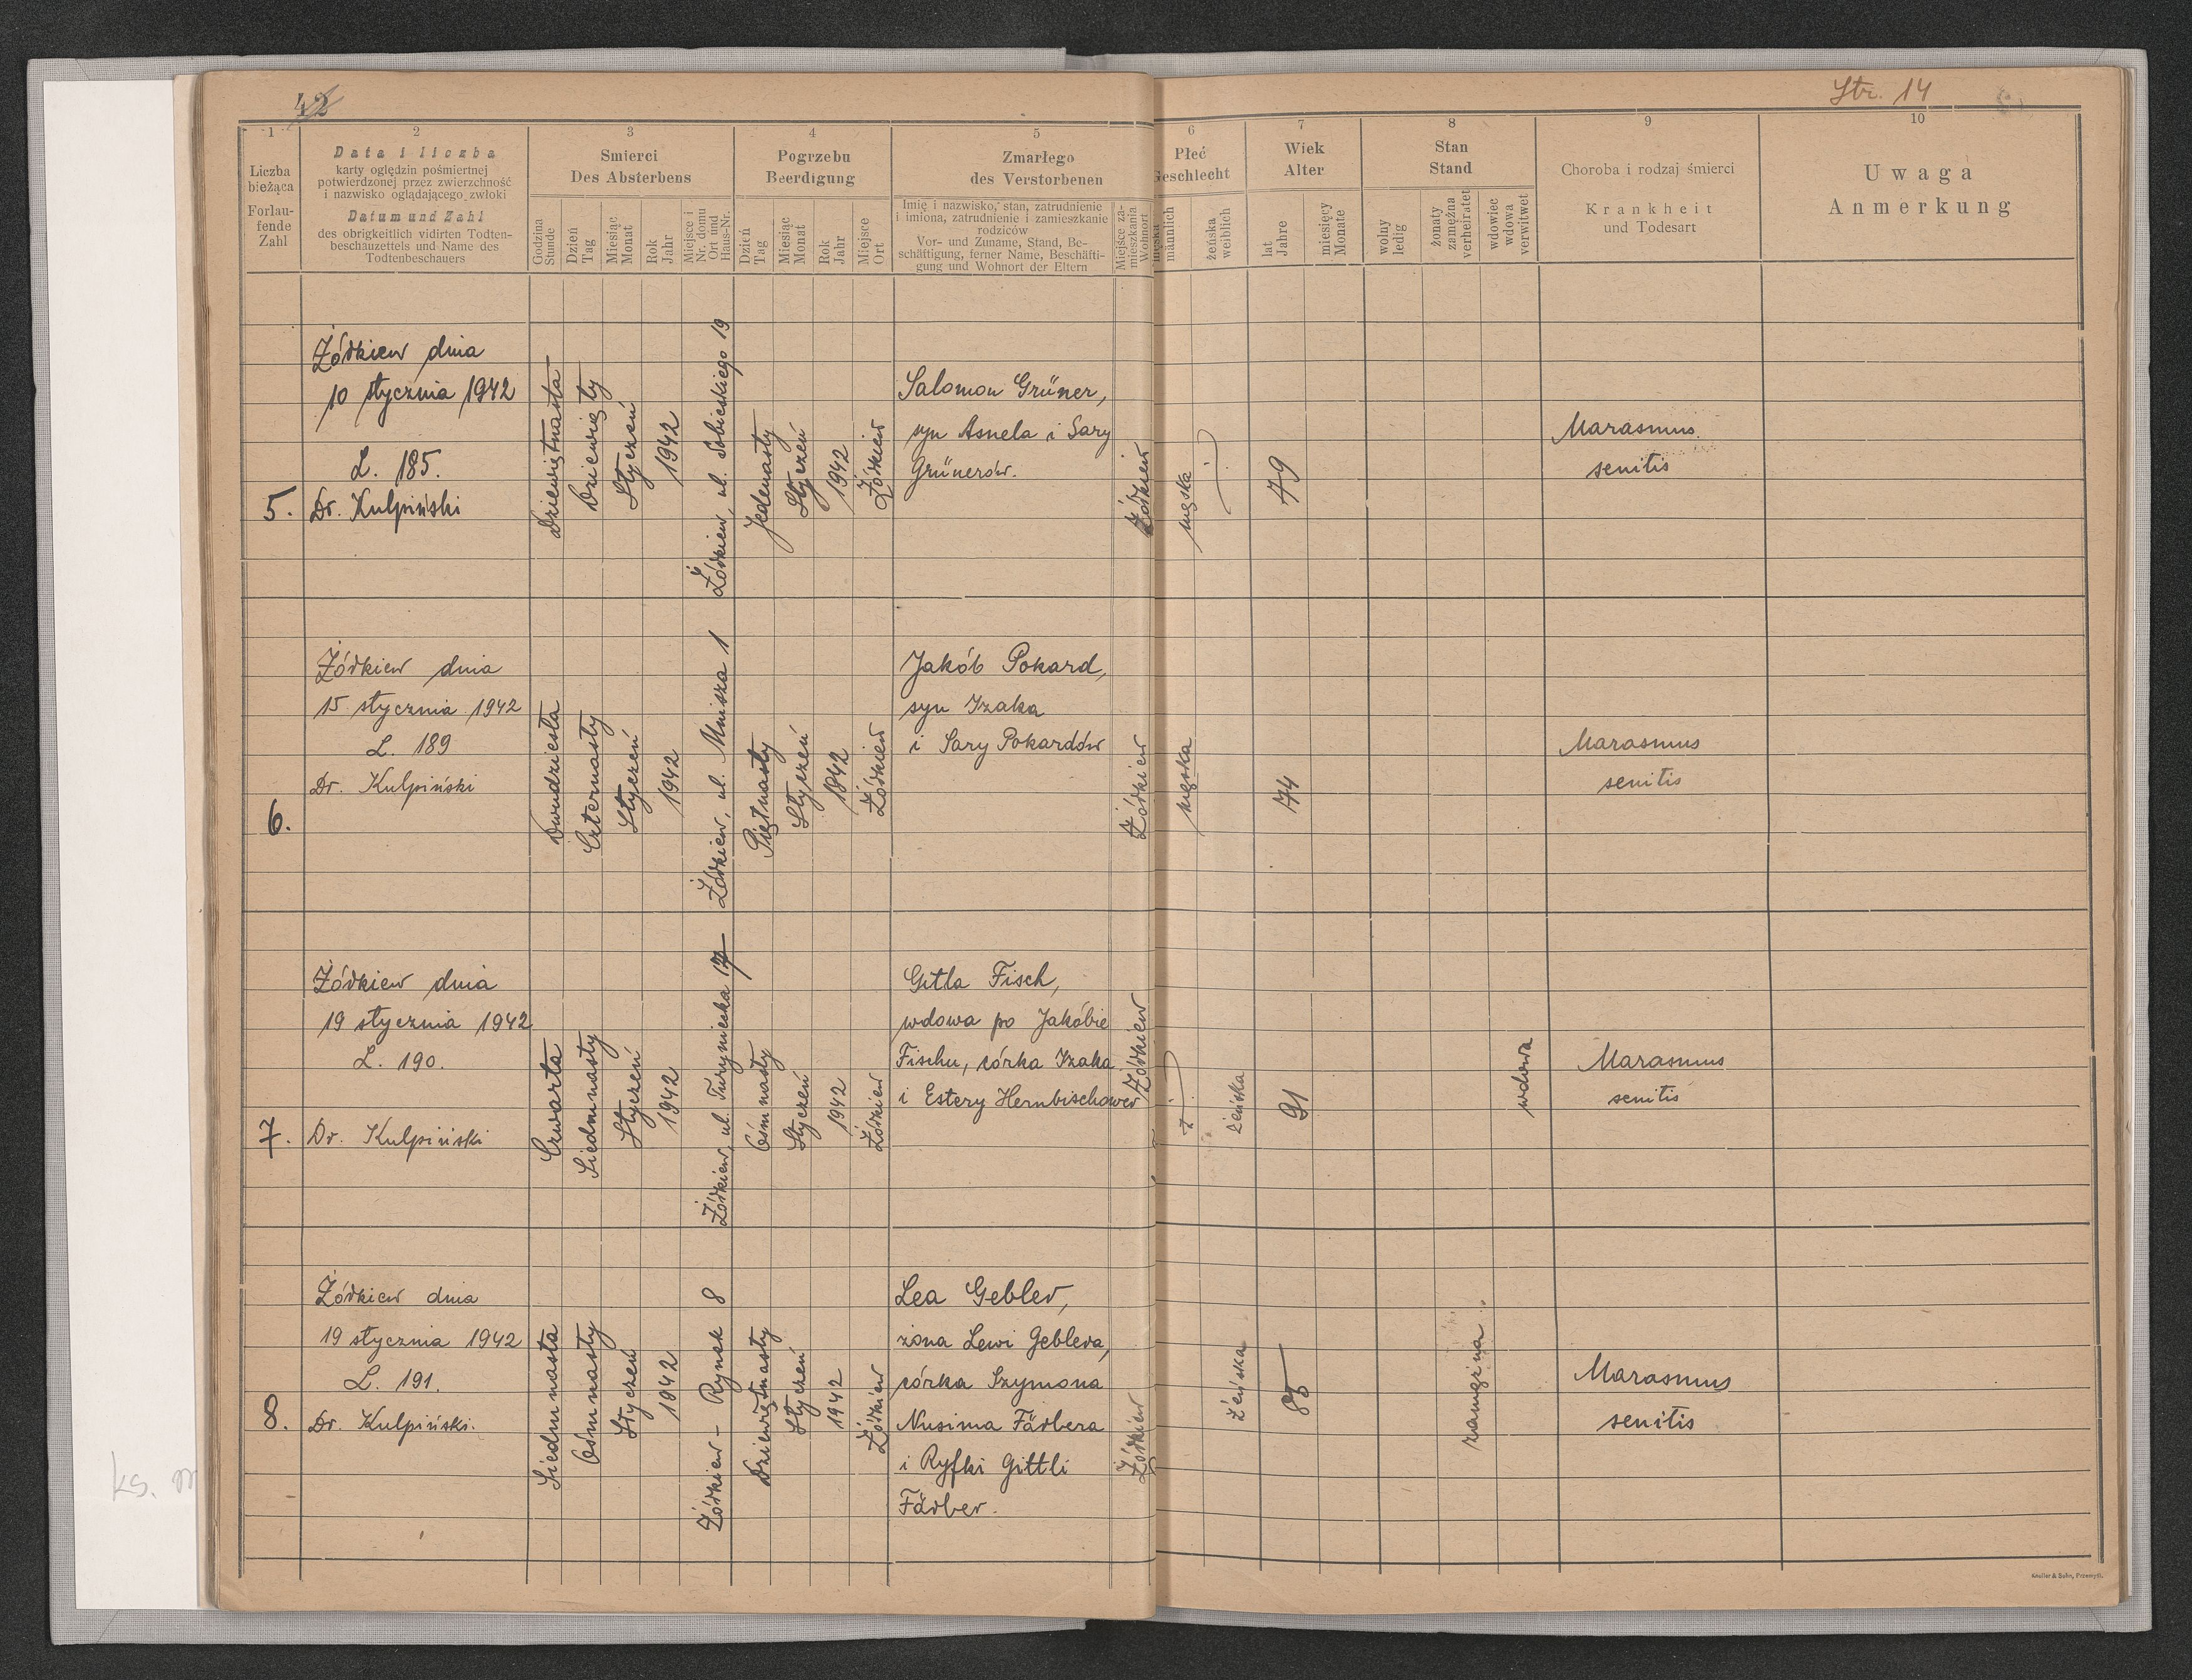 42
Str. 14
1
2
3
4
5
6
7
8
9
10
Liczba
bieżąca
Forlau-
fende
Zahl
Data i liczba
karty oględzin pośmiertnej
potwierdzonej przez zwierzchność
i nazwisko oglądającego zwłoki
Datum und Zahl
des obrigkeitlich vidirten Todten-
beschauzettels und Name des
Todtenbeschauers
Smierci
Des Absterbens
Godzina
Stunde
Dzień
Tag
Miesiąc
Monat
Rok
Jahr
Miejsce i
Nr. domu
Ort und
Haus-Nr.
Pogrzebu
Beerdigung
Dzień
Tag
Miesiąc
Monat
Rok
Jahr
Miejsce
Ort
Zmarłego
des Verstorbenen
Imię i nazwisko, stan, zatrudnienie
i imiona, zatrudnienie i zamieszkanie
rodziców
Vor- und Zuname, Stand, Be-
schäftigung, ferner Name, Beschäfti-
gung und Wohnort der Eltern
Miejsce za-
mieszkania
Wohnort
Płeć
Geschlecht
męska
männlich
żeńska
weiblich
Wiek
Alter
lat
Jahre
miesięcy
Monate
Stan
Stand
wolny
ledig
żonaty
zamężna
verheiratet
wdowiec
wdowa
verwitwet
Choroba i rodzaj śmierci
Krankheit
und Todesart
Uwaga
Anmerkung
5.
Żółkiew dnia
10 stycznia 1942
L. 185.
Dr. Kulpiński
Dziewiętnasta
Dziewięty
Styczeń
1942
Żółkiew, ul. Sobieskiego 19
Jedenasty
Styczeń
1942
Żółkiew
Salomon Grüner,
syn Asnela i Sary
Grünerów.
Żółkiew
męska
79
Marasmus
senitis
6.
Żółkiew dnia
15 stycznia 1942
L. 189
Dr. Kulpiński
Dwudziesta
Czternasty
Styczeń
1942
Żółkiew, ul. Mnisza 1
Piętnasty
Styczeń
1842
Żółkiew
Jakób Pokard,
syn Izaka
i Sary Pokardów
Żółkiew
męska
74
Marasmus
senitis
7.
Żółkiew dnia
19 stycznia 1942
L. 190.
Dr. Kulpiński
Czwarta
Siedmnasty
Styczeń
1942
Żółkiew, ul. Turyniecka 17
Ósmnasty
Styczeń
1942
Żółkiew
Gitla Fisch,
wdowa po Jakóbie
Fischu, córka Izaka
i Estery Hernbischower
Żółkiew
żeńska
91
wdowa
Marasmus
senitis
8.
Żółkiew dnia
19 stycznia 1942
L. 191.
Dr. Kulpiński.
Siedmnasta
Ósmnasty
Styczeń
1942
Żółkiew - Rynek 8
Dziewiętnasty
Styczeń
1942
Żółkiew
Lea Gebler,
żona Lewi Geblera,
córka Szymona
Nusima Färbera
i Ryfki Gittli
Färber.
Żółkiew
żeńska
85
zamężna
Marasmus
senitis
Knoller & Sohn, Przemyśl.
ks.